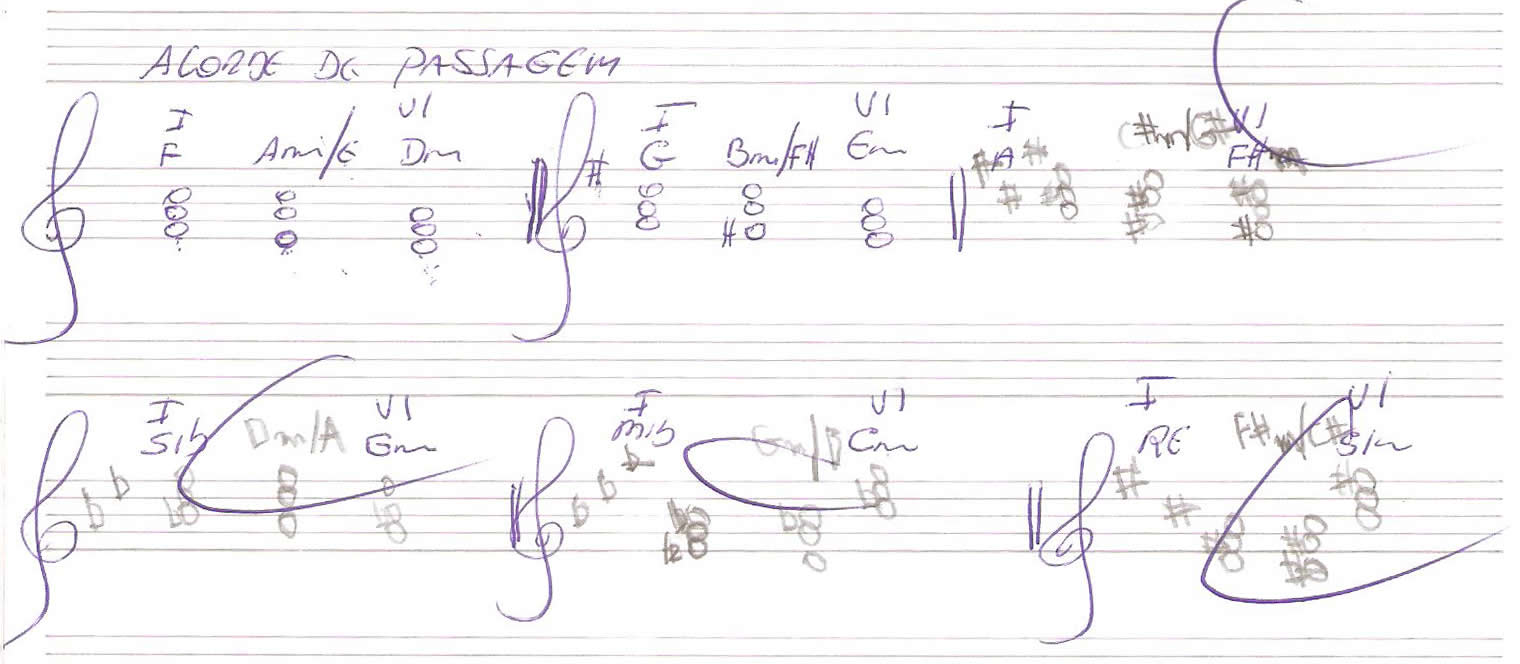 ACORDE DE PASSAGEM
I VI I VI I VI
F Am/E Dm G Bm/F# Em A C#m/G# F#m
I VI I VI I VI
Sib Dm/A Gm Mib Cm RE F#m/C# SIm